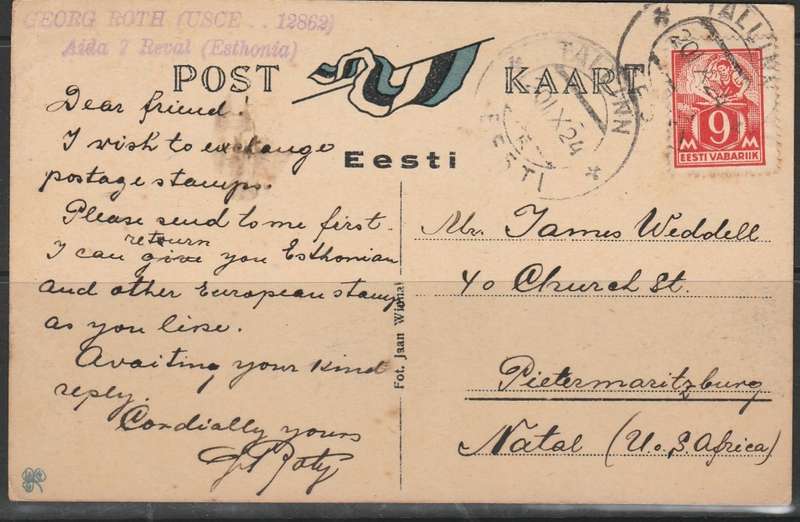 GEORG ROTH (USCE . . 12862)
Aida 7 Reval (Esthonia)
POST KAART
Eesti
TALLINN
20 IX 24
EESTI
TALLINN
9
M M
EESTI VABARIIK
Dear friend!
I wish to exchange
postage stamps.
Please send to me first.
return
I can give you Esthonian
and other European stamp
as you like.
Awaiting your kind
reply.
Cordially yours
Fot. Jaan
Mr. James Weddell
40 Church St.
Pietermaritzburg
Natal (U.o.S.Africa)